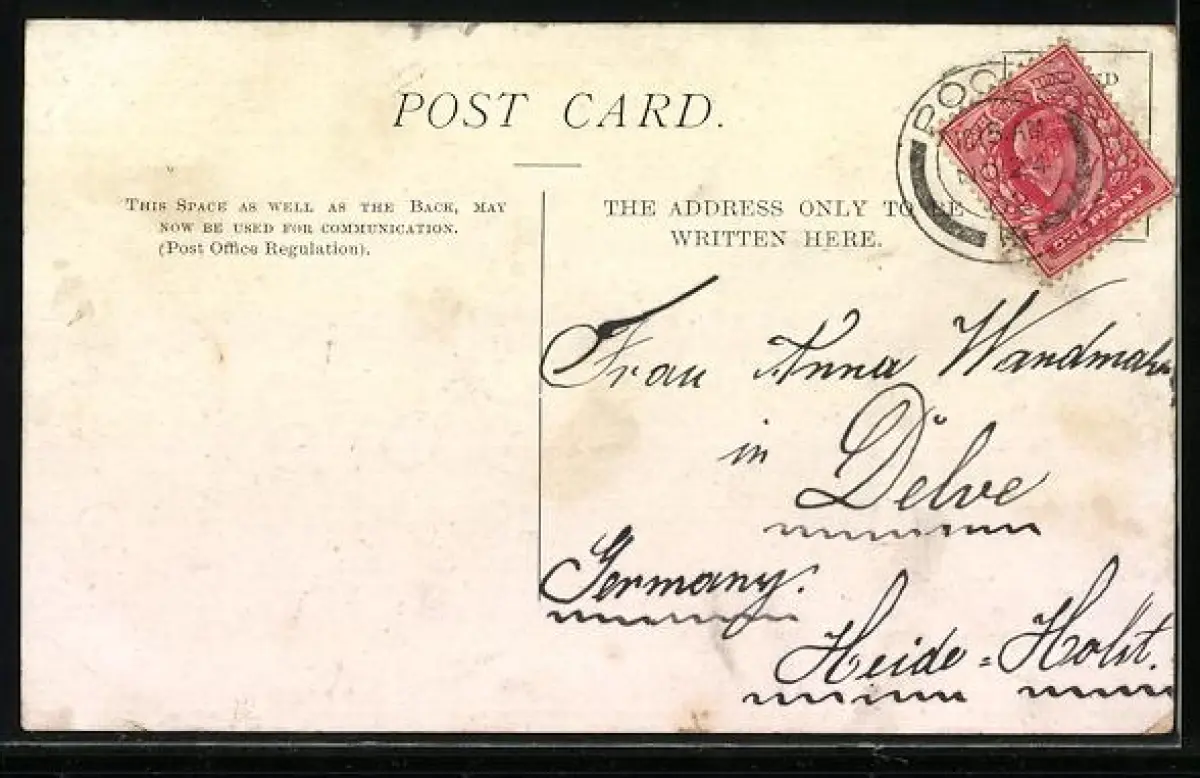 POST CARD.
THIS SPACE AS WELL AS THE BACK, MAY
NOW BE USED FOR COMMUNICATION.
(Post Office Regulation).
THE ADDRESS ONLY TO BE
WRITTEN HERE.
ONE PENNY
Frau Anna Wandmaher
in Delve
Germany.
Heide = Holst.